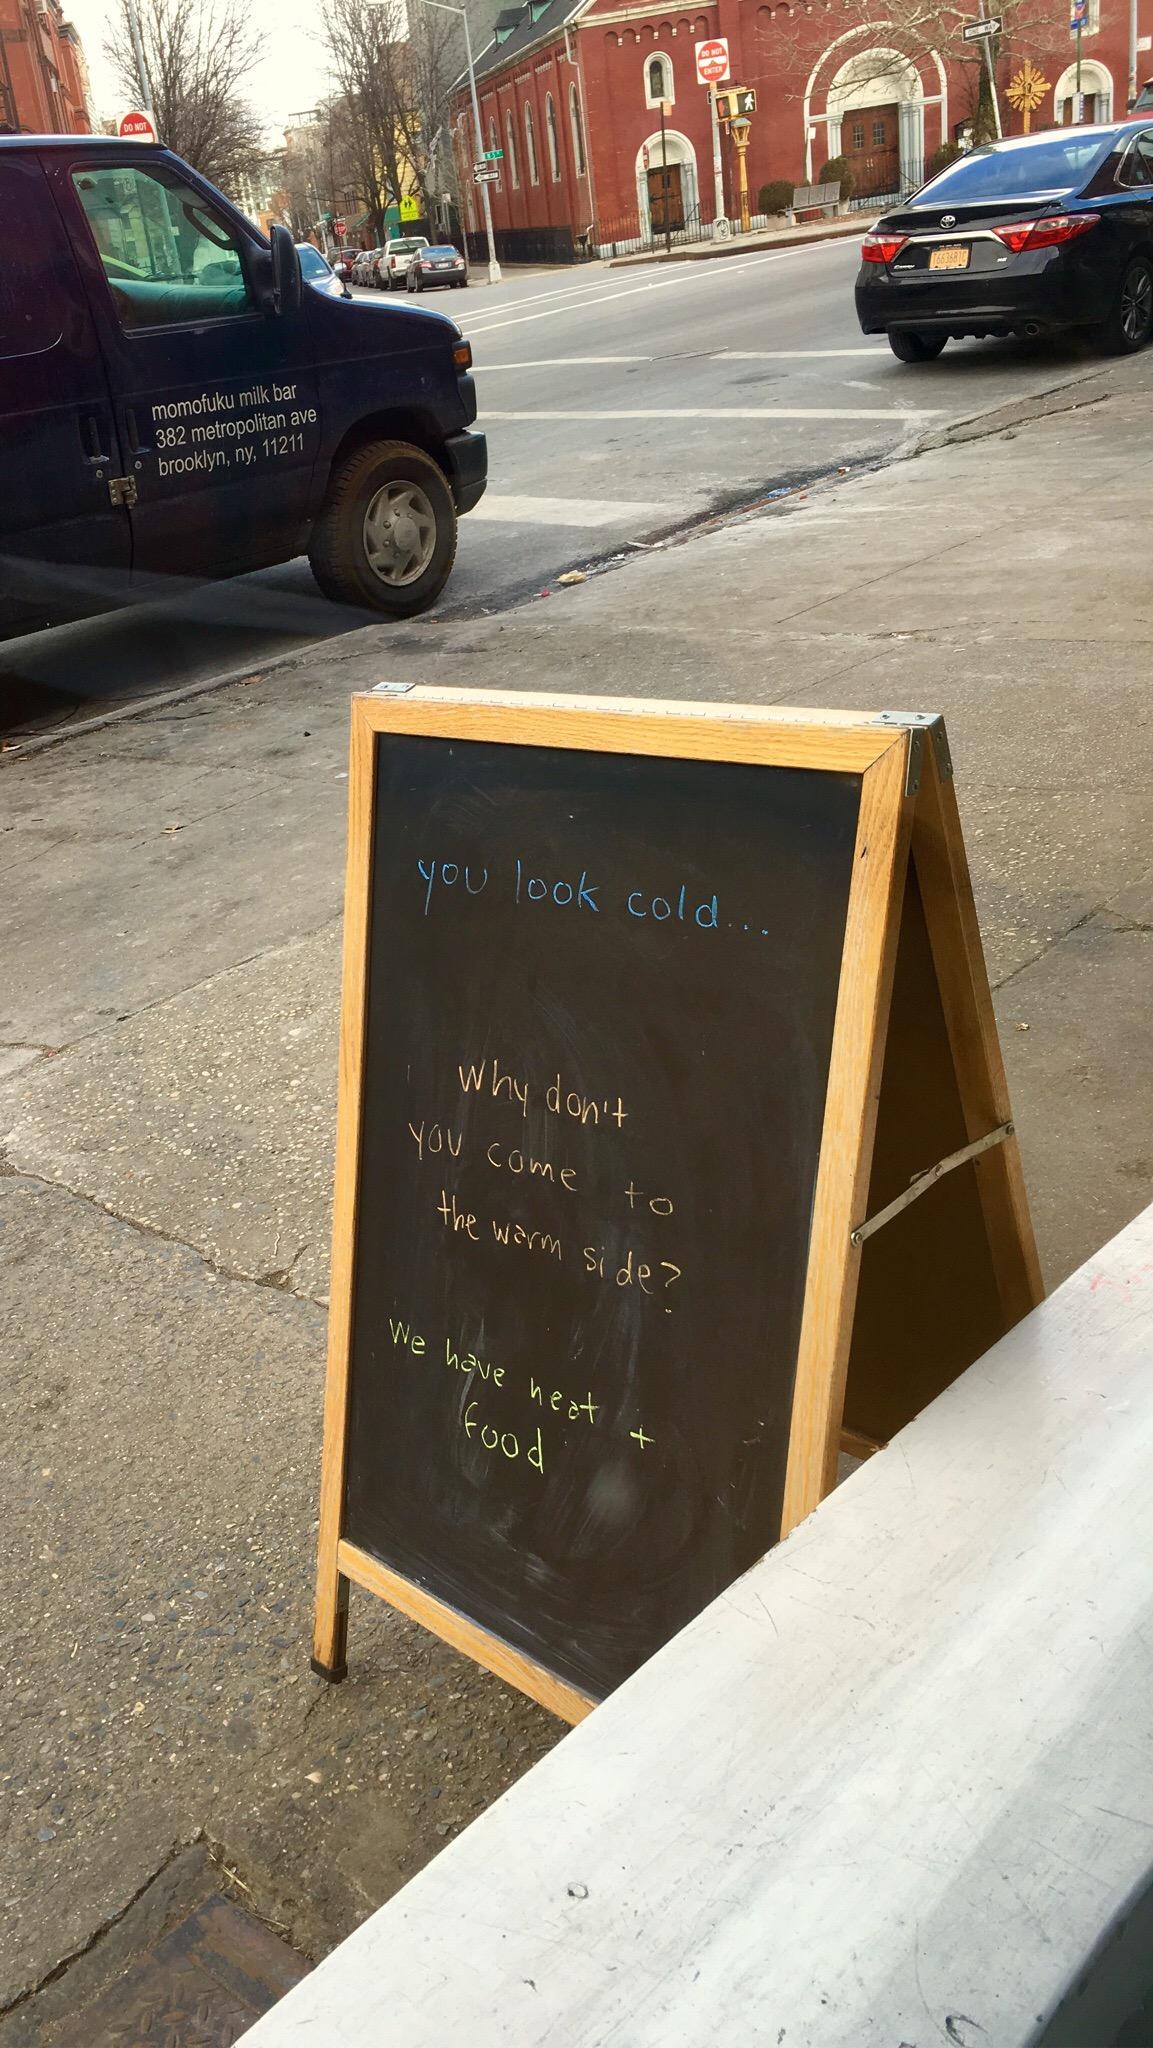 DO NOT
ENTER
DO NOT
momofuku milk bar
382 metropolitan ave
brooklyn, ny, 11211
you look cold...
Why don't
you come to
the warm side?
We have heat +
food